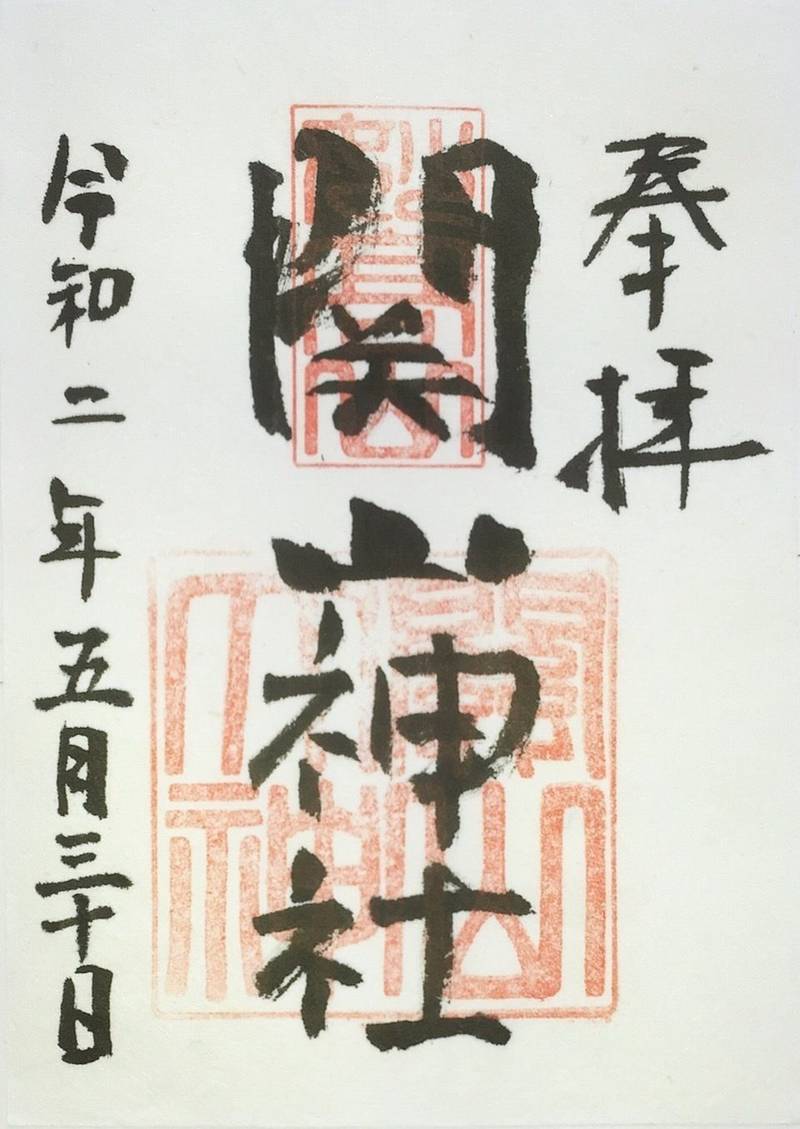 奉拝
関山神社
令和二年五月三十日